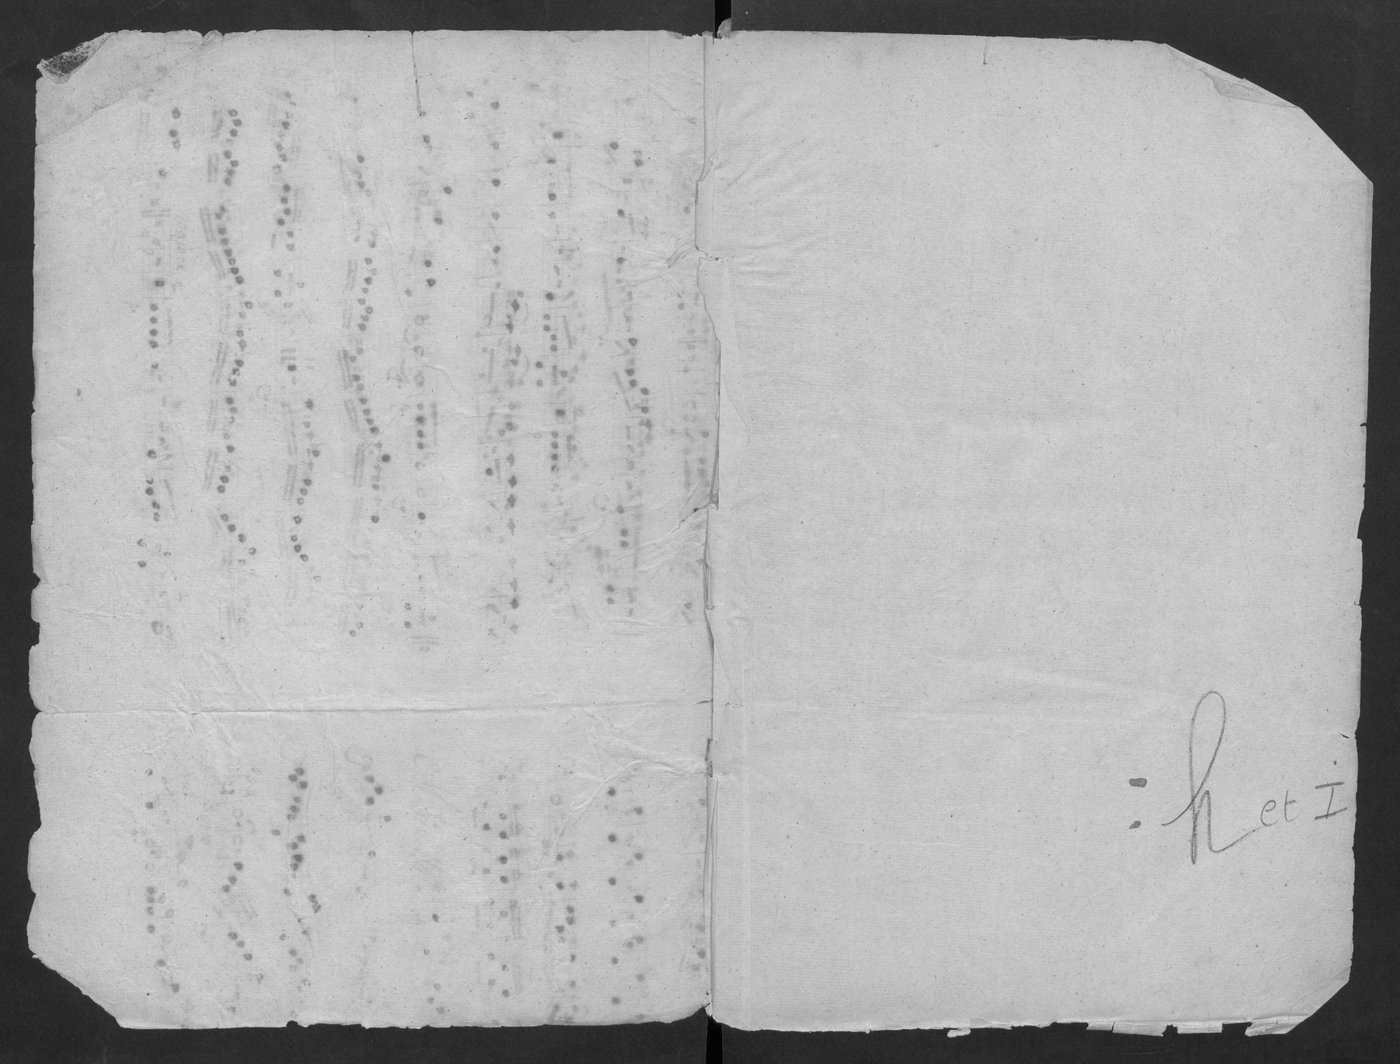 : h et I.